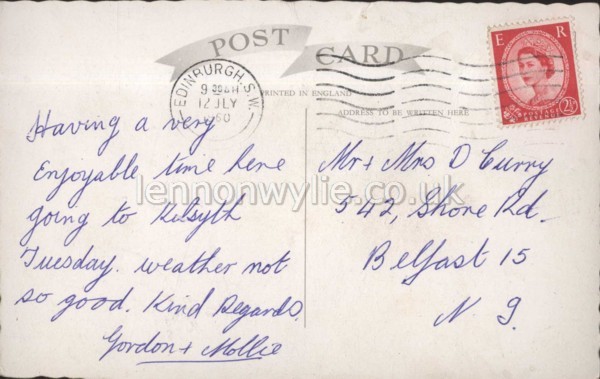 POST CARD
E R
POSTAGE REVENUE
2½D
EDINBURGH. S.W.
9 30AM
12 JLY
1960
PRINTED IN ENGLAND
ADDRESS TO BE WRITTEN HERE
Having a very
Enjoyable time here
going to Kilsyth
Tuesday. weather not
so good. Kind Regards.
Gordon + Mollie
Mr + Mrs D Curry
542, Shore Rd.
Belfast 15
N I.
lennonwylie.co.uk